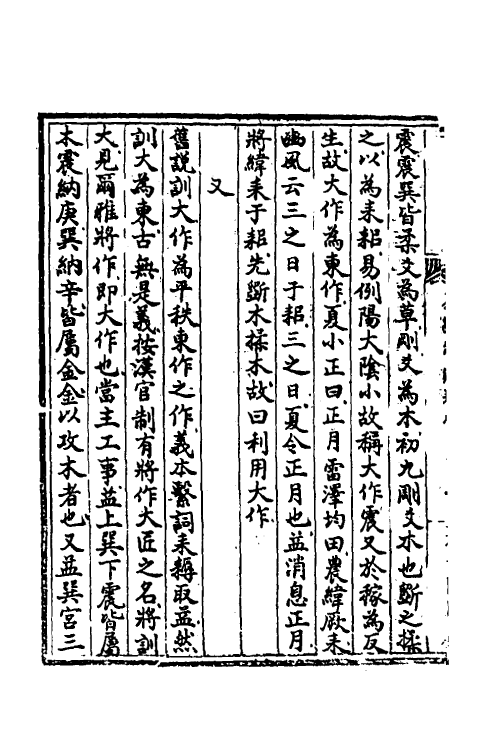 震震巽皆柔爻為草剛爻為木初九剛爻木也斵之揉
之以為耒耜易例陽大陰小故稱大作震又於稼為反
生故大作為東作夏小正曰正月雷澤均田農緯厥耒
豳風云三之日于耜三之日夏令正月也益消息正月
將緯耒于耜先斵木揉木故曰利用大作
又
舊說訓大作為平秩東作之作義本繫詞耒耨取益然
訓大為東古無是義按漢官制有將作大匠之名將訓
大見爾雅將作即大作也當主工事益上巽下震皆屬
木震納庚巽納辛皆屬金金以攻木者也又益巽宮三